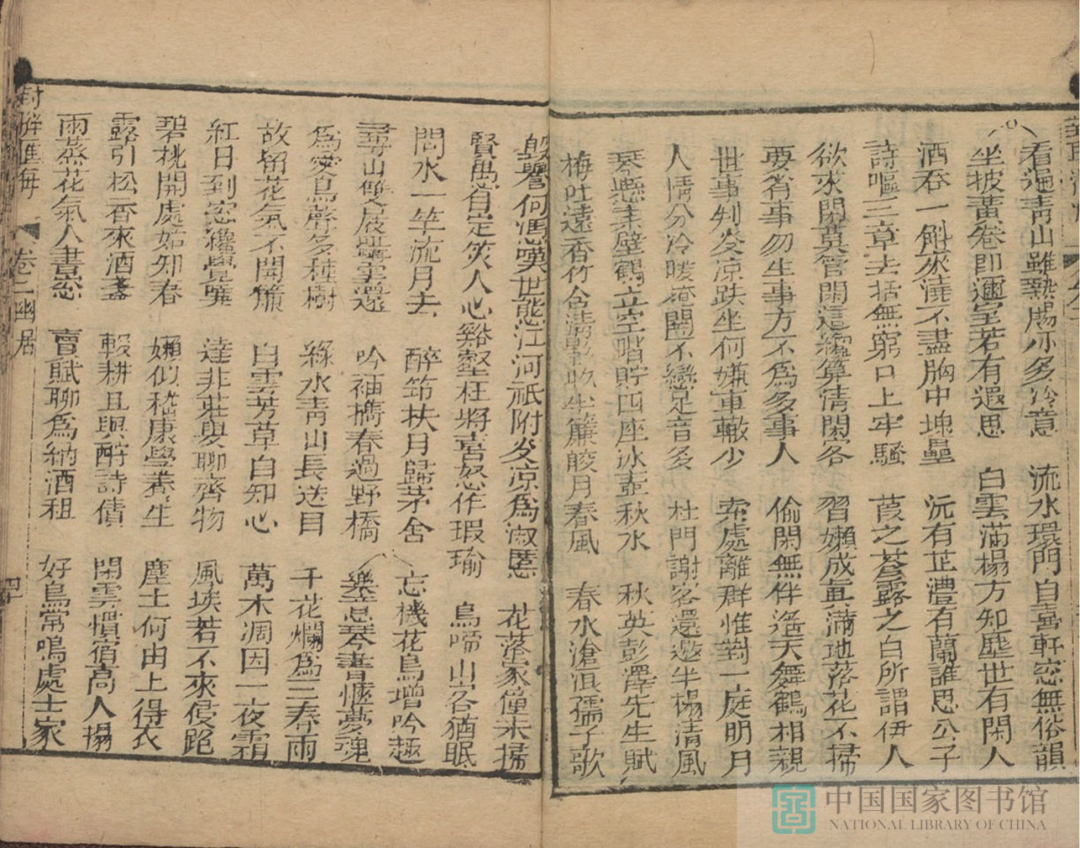 看遍靑山雖熱腸亦多冷意　流水環門自喜軒窓無俗韻
坐披黃卷卽邇室若有遐思　白雲滿榻方知塵世有閑人
酒吞一斛來澆不盡胸中塊壘　沅有芷澧有蘭誰思公子
詩嘔三章去括無窮口上牢騷　葭之蒼露之白所謂伊人
欲求閑莫管閑這纔算淸閑客　習嬾成眞滿地落花不掃
要省事勿生事方不爲多事人　偷閑無伴遙天舞鶴相親
世事判炎凉趺坐何嫌車轍少　索處離群惟對一庭明月
人情分冷暖掩關不戀足音多　杜門謝客還邀半榻淸風
琴懸素壁鶴立空階貯四座冰壺秋水　秋英彭澤先生賦
梅吐遠香竹含淸坐簾皎月春風　春水滄浪孺子歌
毀譽何憑嘆世態江河祇附炎凉爲淑慝　花落家僮未掃
賢愚省定笑人心谿壑枉將喜怒作瑕瑜　鳥啼山客猶眠
問水一竿流月去　醉笻扶月歸茅舍　忘機花鳥增吟趣
尋山雙屐踏雲還　吟袖攜春過野橋　樂志琴書愜夢魂
爲愛鳥聲多種樹　綠水靑山長送目　千花爛爲三春雨
故留花氣不開簾　白雲芳草自知心　萬木凋因一夜霜
紅日到窓纔覺曉　達非莊叟聊齊物　風埃若不來侵路
碧桃開處始知春　嬾似嵇康學養生　塵土何由上得衣
露引松香來酒盞　輟耕且與酬詩債　閑雲慣宿高人榻
雨蒸花氣入書窓　賣賦聊爲納酒租　好鳥常鳴處士家
卷二幽居